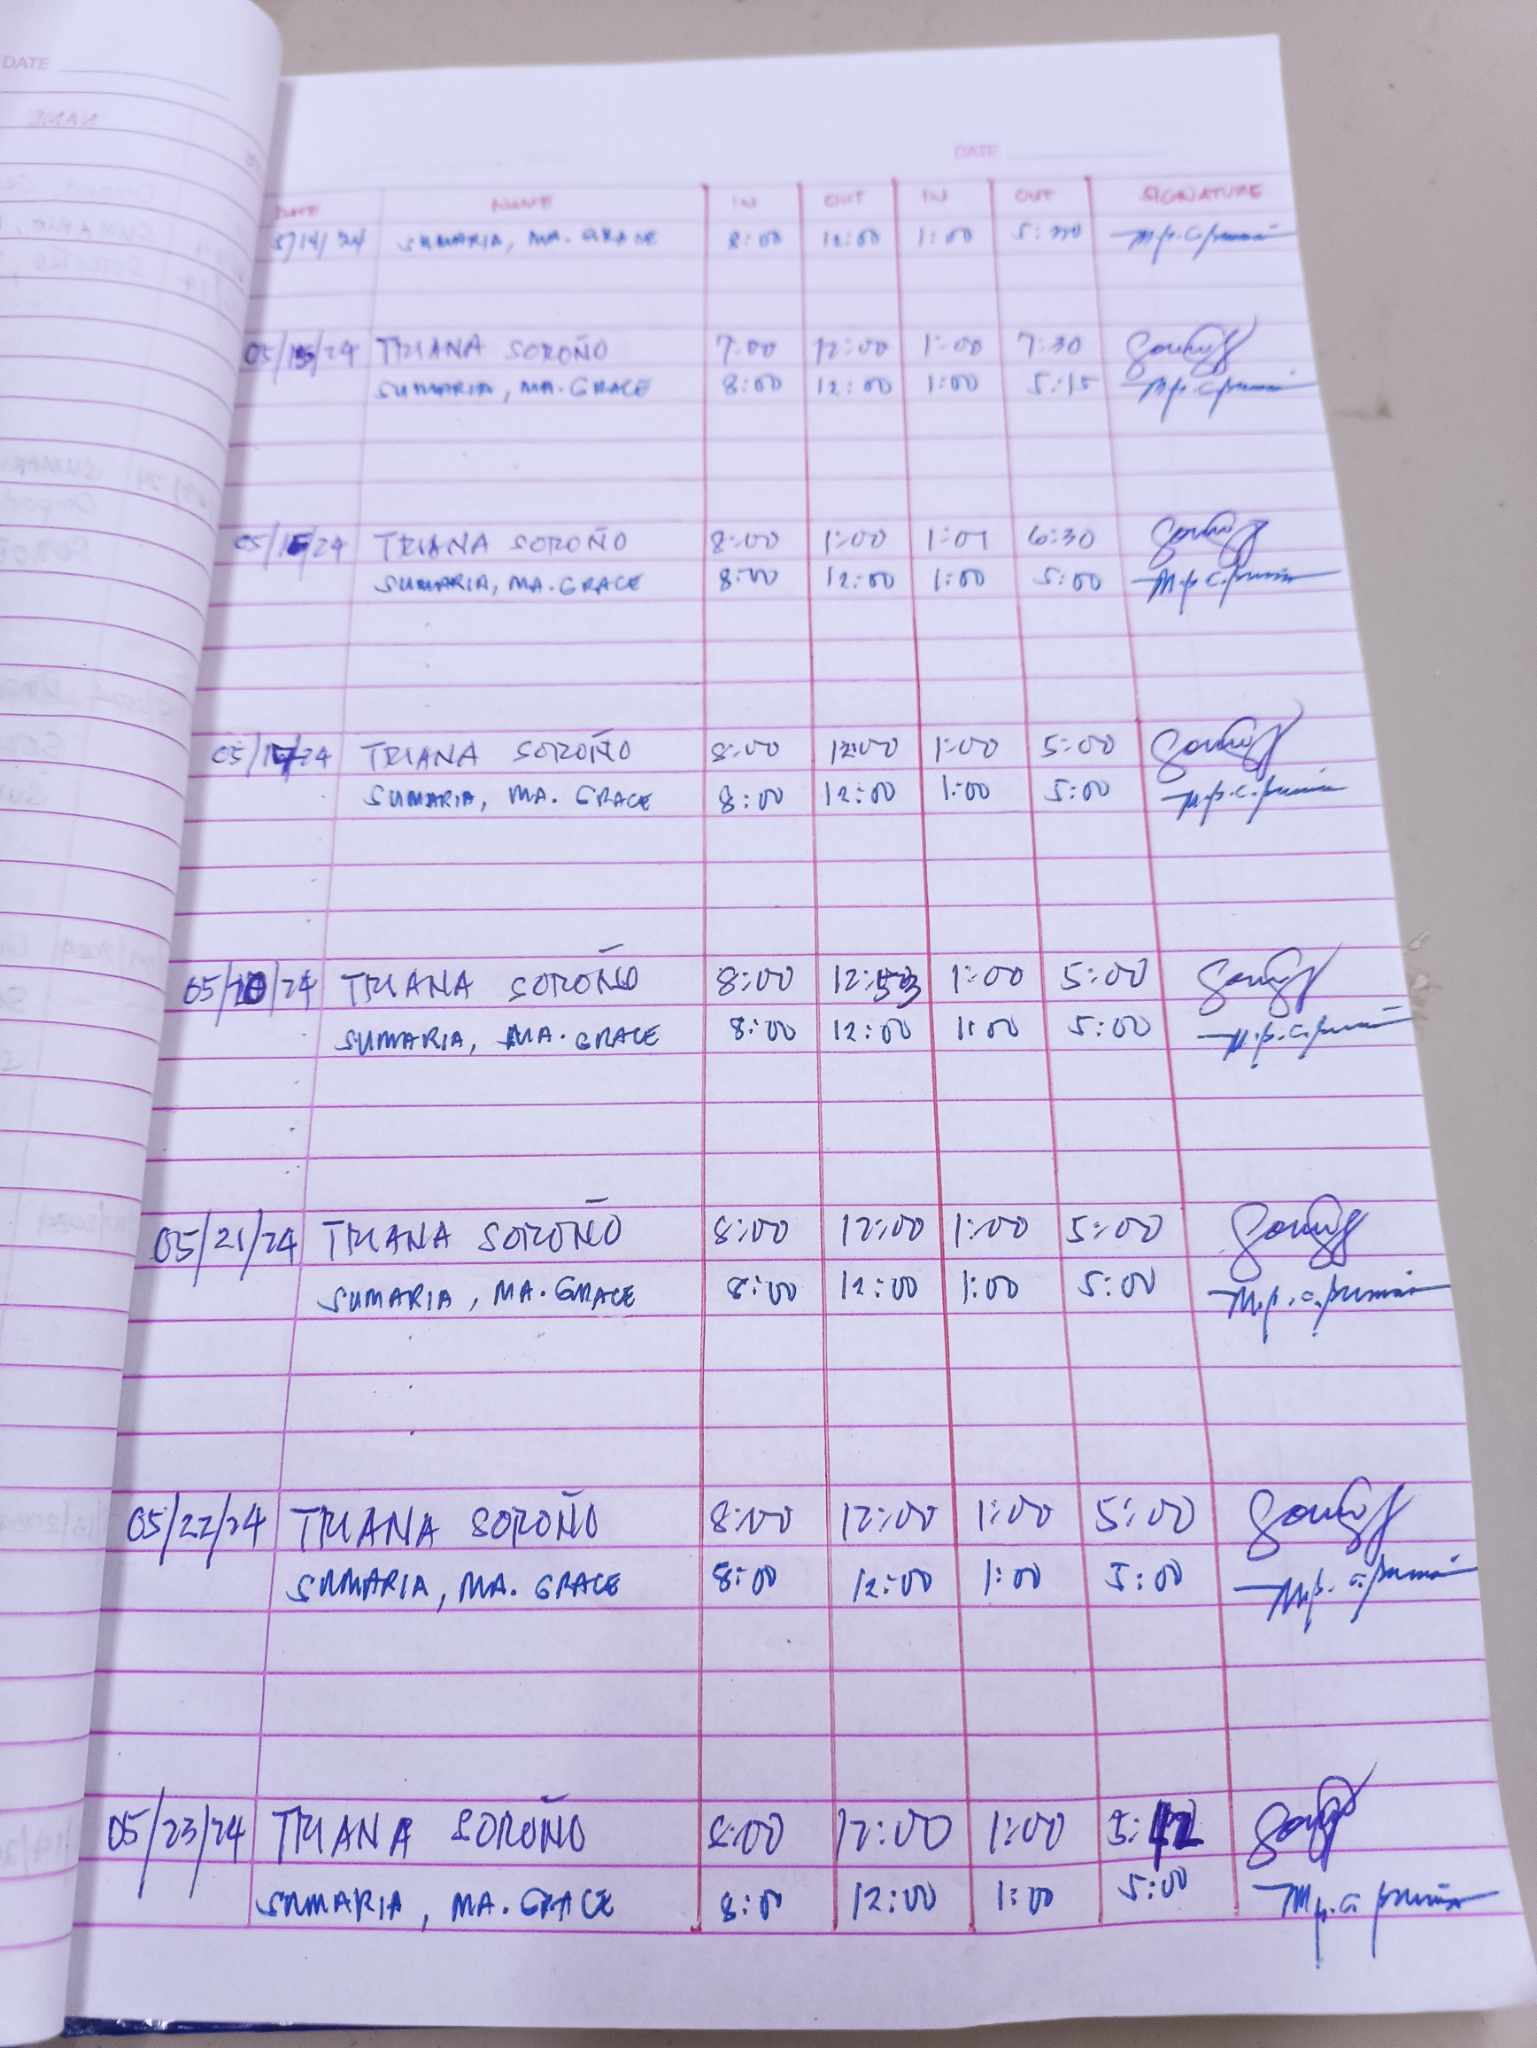 DATE
NAME
DATE
DATE NAME IN OUT IN OUT SIGNATURE
5/14/24 SUMARIA, MA. GRACE 8:00 12:00 1:00 5:30
05/15/24 TRIANA SOROÑO 7:00 12:00 1:00 7:30
SUMARIA, MA. GRACE 8:00 12:00 1:00 5:15
05/16/24 TRIANA SOROÑO 8:00 1:00 1:01 6:30
SUMARIA, MA. GRACE 8:00 12:00 1:00 5:00
05/17/24 TRIANA SOROÑO 8:00 12:00 1:00 5:00
SUMARIA, MA. GRACE 8:00 12:00 1:00 5:00
05/20/24 TRIANA SOROÑO 8:00 12:53 1:00 5:00
SUMARIA, MA. GRACE 8:00 12:00 1:00 5:00
05/21/24 TRIANA SOROÑO 8:00 12:00 1:00 5:00
SUMARIA, MA. GRACE 8:00 12:00 1:00 5:00
05/22/24 TRIANA SOROÑO 8:00 12:00 1:00 5:00
SUMARIA, MA. GRACE 8:00 12:00 1:00 5:00
05/23/24 TRIANA SOROÑO 8:00 12:00 1:00 5:12
SUMARIA, MA. GRACE 8:00 12:00 1:00 5:00